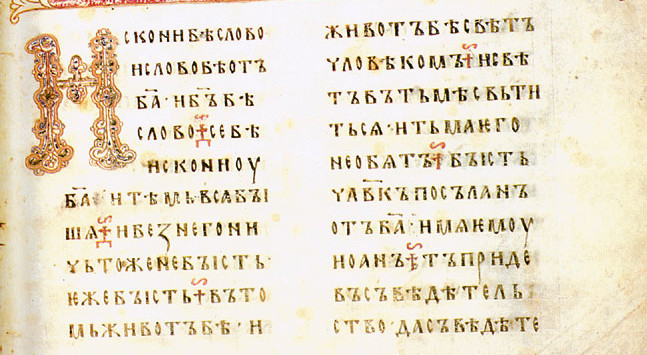 Искони бѣ слово
и слово бѣ отъ
б҃а · и б҃ъ бѣ
слово се бѣ
искони оу
б҃а · и тѣмь всѧ бꙑ
шѧ и без него ни
чьтоже не бꙑсть ·
ѥже бꙑсть въ то
мь животъ бѣ · и
животъ бѣ свѣтъ
чловѣкомъ и свѣ
тъ въ тьмѣ свьти
ться · и тьма ѥго
не обѧтъ бꙑсть
ч҃лвкъ посъланъ
отъ б҃а · имѧ ѥмоу
иоанъ тъ приде
въ съвѣдѣтель
ство · да съвѣдѣте